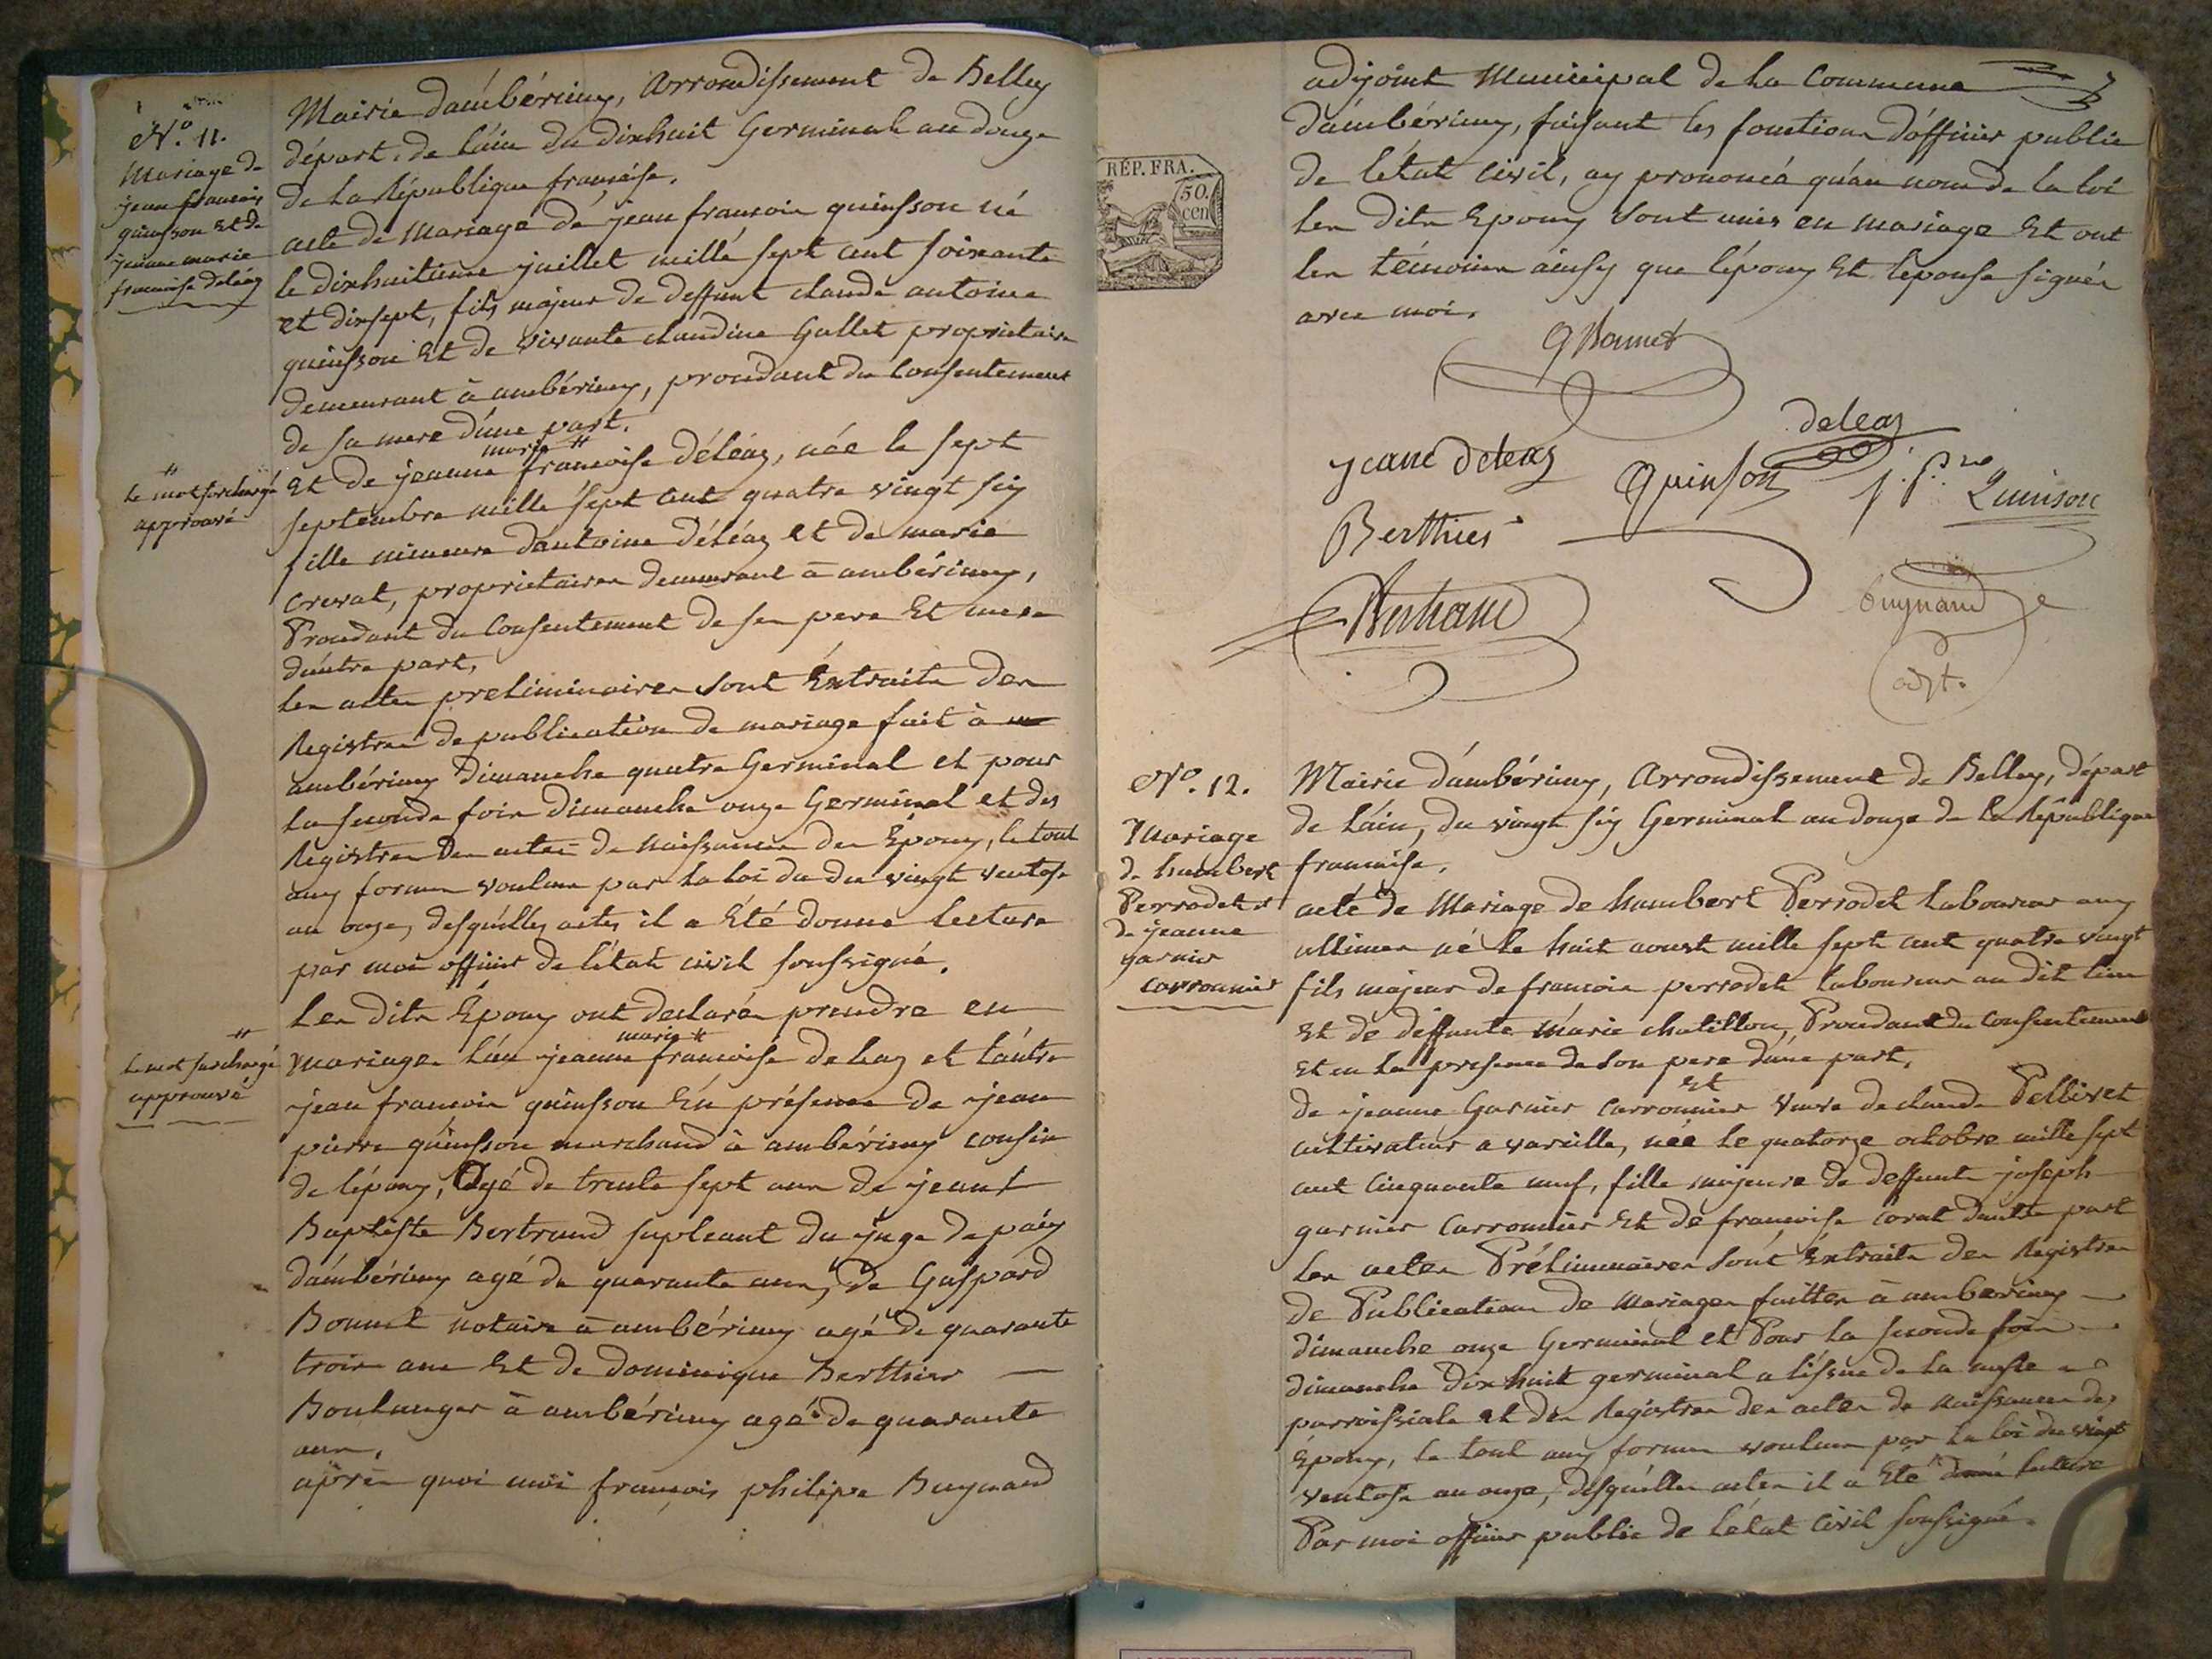 N.º 11.
Mariage de
jean francois
quinsson et de
jeanne marie
francoise deléaz
Mairie d'ambérieux, arrondissement de Belley
départ. de l'ain du dixhuit Germinal an douze
de la République francaise.
acte de Mariage de jean francois quinsson né
le dixhuitieme juillet mille sept cent soixante
et dixsept, fils majeur de deffunt claude antoine
quinsson et de vivante claudine Gallet proprietaire
demeurant à ambérieux, procedant du consentement
de sa mere d'une part.
marie #
Et de jeanne francoise déléaz, née le sept
#
le mot surchargé
approuvé
septembre mille sept cent quatre vingt six
fille mineure d'antoine déléaz et de marie
crevat, proprietaires demeurant à ambérieux,
Procedant du Consentement de ses pere et mere
d'autre part,
les actes preliminaires sont Extraits des
Registres de publication de mariage fait à
ambérieux dimanche quatre Germinal et pour
la seconde fois dimanche onze Germinal et des
Registres des actes de naissance des Epoux, le tout
aux formes voulues par la loi du du vingt ventose
an onze, desquelles actes il a Été donné lecture
par moi officier de l'état civil soussigné.
Les dits Époux ont declarés prendre en
marie #
mariage l'un jeanne francoise deleaz et l'autre
#
le mot surchargé
approuvé
jean francois quinsson En présence de jean
pierre quinsson marchand à ambérieux cousin
de l'époux, agé de trente sept ans de jean
Baptiste Bertrand supleant du juge de paix
d'ambérieux agé de quarante ans, de Gaspard
Bonnet notaire à ambérieux agé de quarante
trois ans Et de dominique Berthier
Boulanger à ambérieux agé de quarante
ans.
après quoi moi francois philipe Buynand
RÉP. FRA.
50.
cen
adjoint Municipal de la Commune
d'ambérieux, faisant les fonctions d'officier public
de l'état civil, ay prononcé qu'au nom de la loi
les dits Epoux sont unis en mariage Et ont
les témoins ainsy que l'époux Et l'epouse signés
avec moi.
G Bonnet
deleaz
jeane deleaz
Quinson
j. p.re Quinson
Berthier
Bertrand
buynand
adjt.
Nº. 12.
Mariage
de humbert
Perrodet et
de jeanne
garnier
carronnier
Mairie d'ambérieux, Arrondissement de Belley, départ
de l'ain, du vingt six Germinal an douze de la République
francaise.
acte de Mariage de humbert Perrodet laboureur aux
allimes né le huit aoust mille sept cent quatre vingt
fils majeur de francois perrodet laboureur au dit lieu
Et de deffunte marie chatillon, Procedant du consentement
Et en la presence de son pere d'une part.
Et
de jeanne Garnier carronnier veuve de claude Pellivet
cultivateur a vareille, née le quatorze octobre mille sept
cent cinquante neuf, fille majeure de deffunts joseph
garnier carronnier Et de francoise corat d'autre part
les actes Préliminaires sont Extraits des Registres
de Publications de Mariages faittes à ambérieux
dimanche onze Germinal et Pour la seconde fois
dimanche dix huit germinal a l'issue de la messe
parroissiale et des Registres des actes de naissances des
Époux, le tout aux formes voulues par la loi du vingt
ventose an onze, desquelles actes il a Été donné lecture
Par moi officier public de l'état civil soussigné.